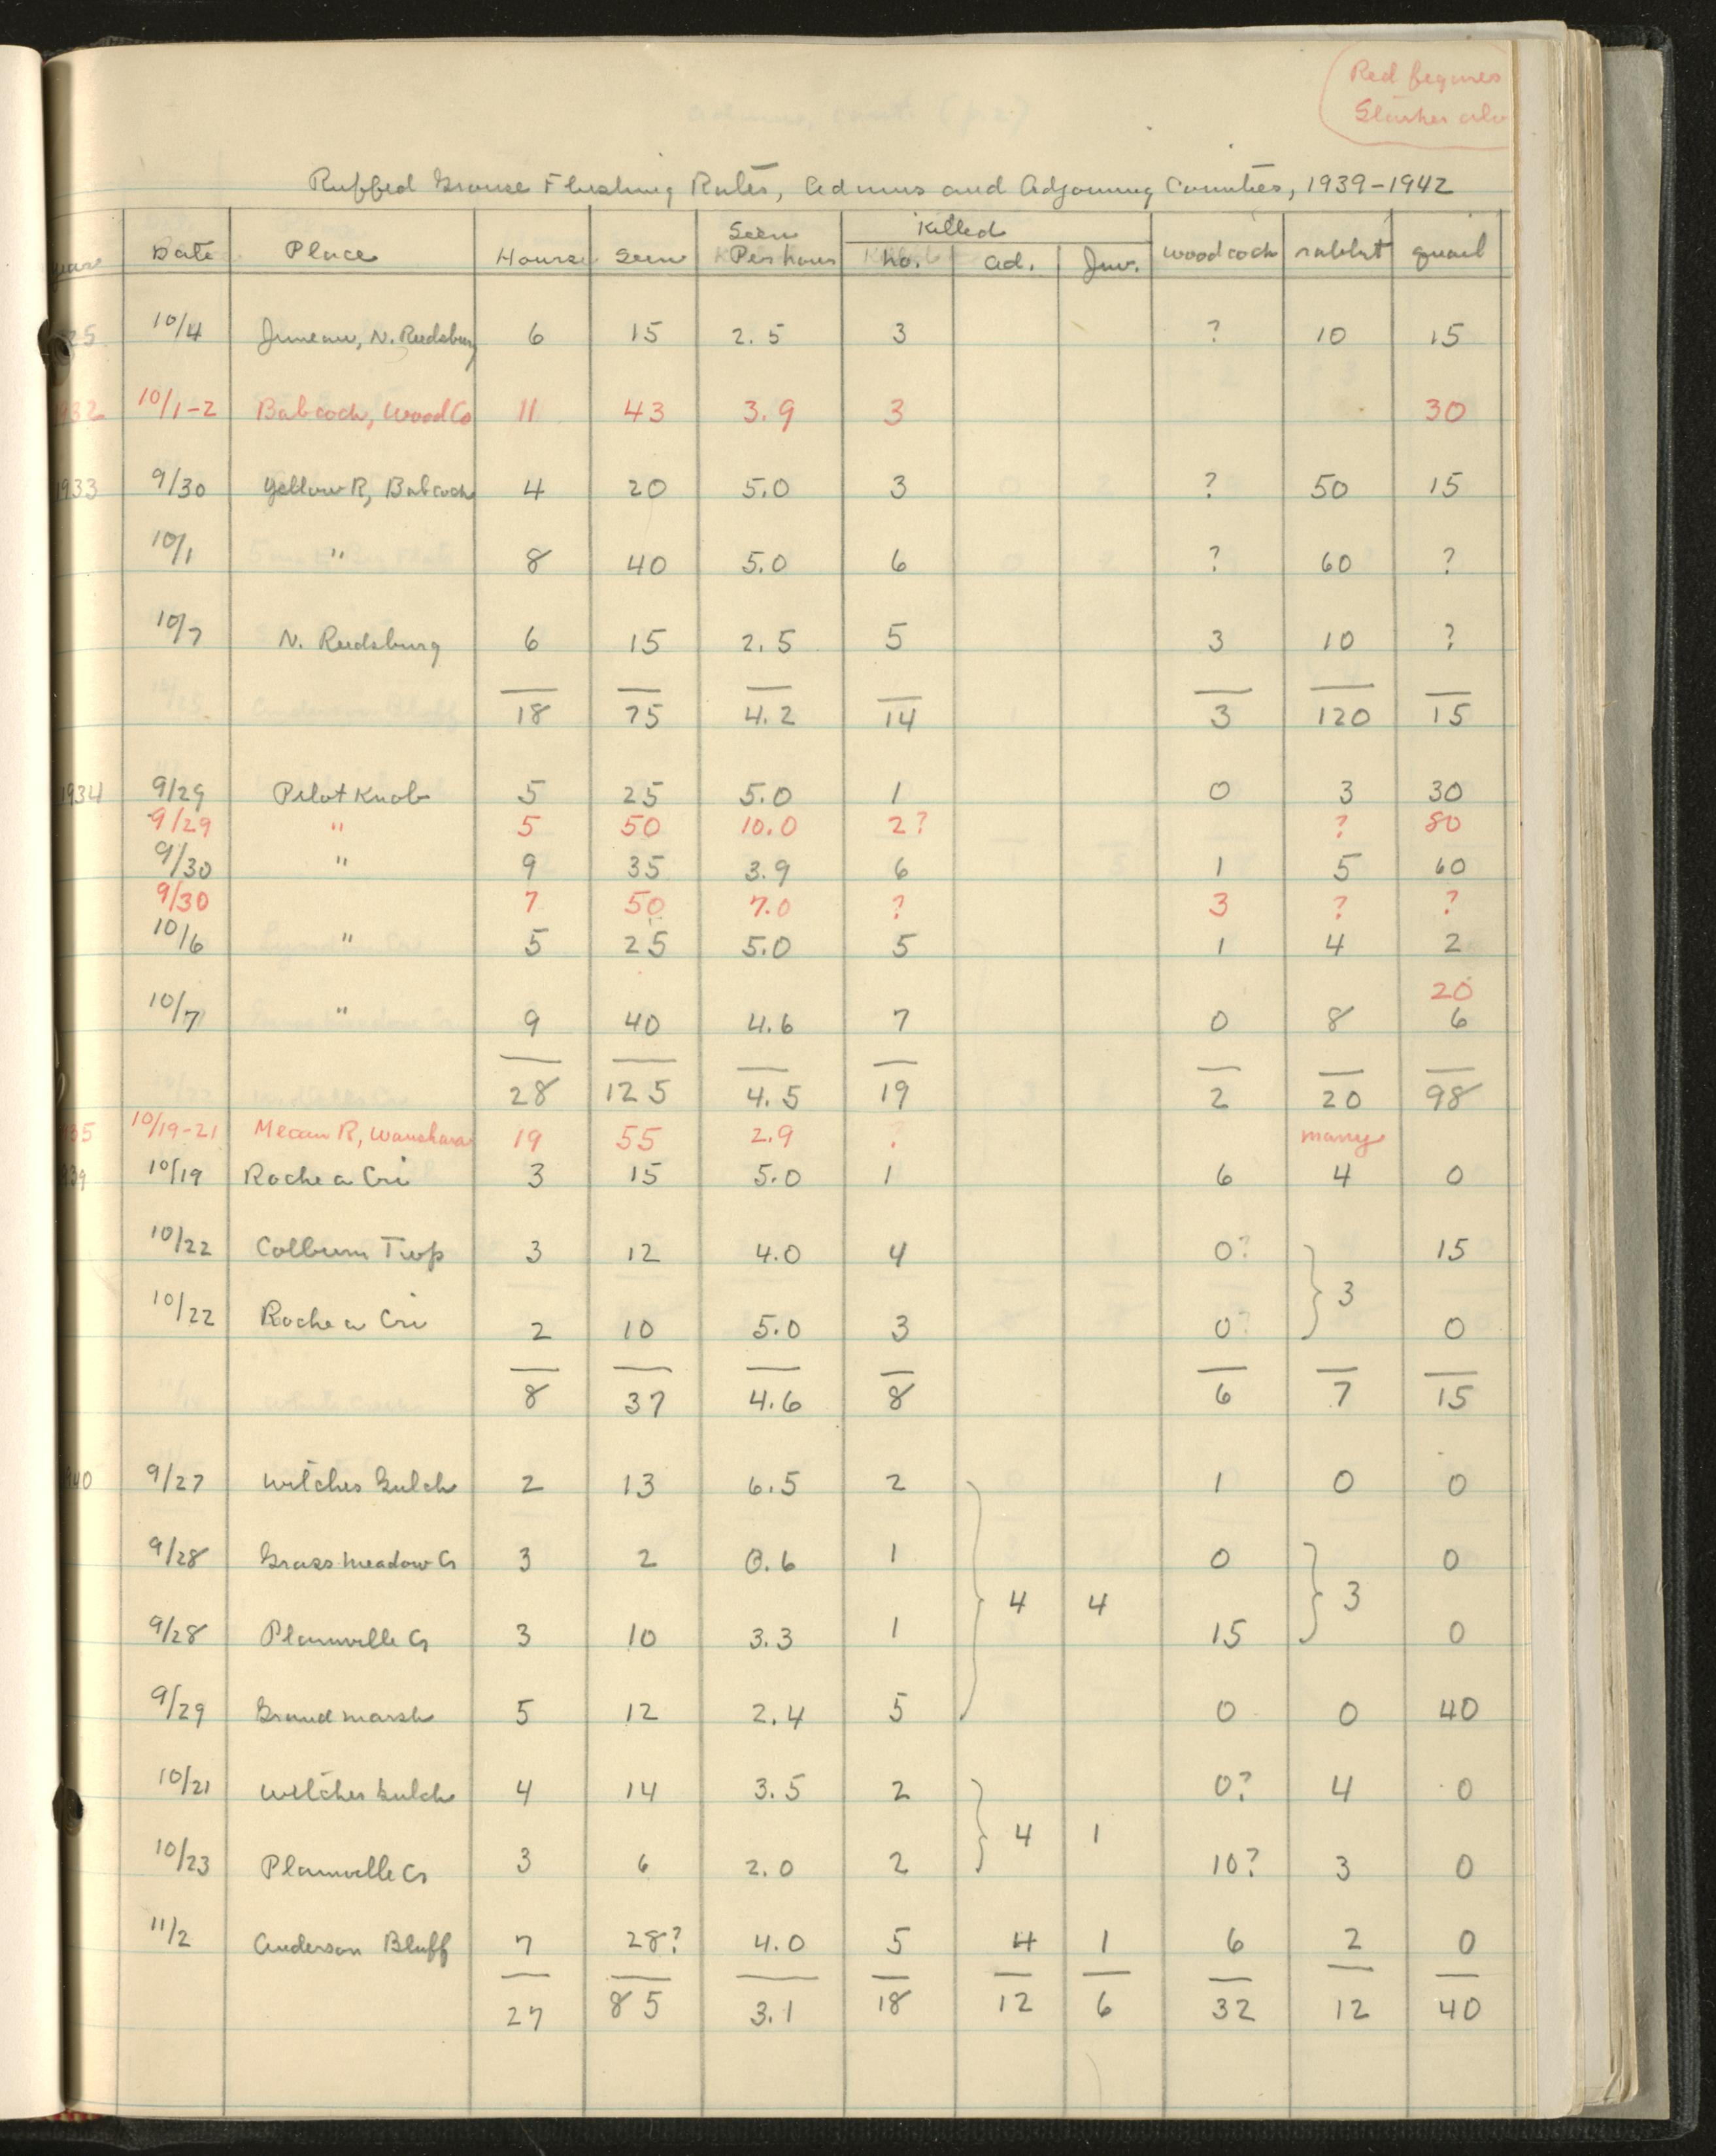 Red figures
Starker alo
Ruffed Grouse Flushing Rates, Adams and Adjoining Counties, 1939-1942
Killed
Date Place Hours Seen Seen Per hour No. Ad. Juv. woodcock rabbit quail
25 10/4 Juneau, N. Reedsburg 6 15 2.5 3 ? 10 15
932 10/1-2 Babcock, Wood Co 11 43 3.9 3 30
1933 9/30 Yellow R, Babcock 4 20 5.0 3 ? 50 15
10/1 " 8 40 5.0 6 ? 60 ?
10/7 N. Reedsburg 6 15 2.5 5 3 10 ?
18 75 4.2 14 3 120 15
1934 9/29 Pilot Knob 5 25 5.0 1 0 3 30
9/29 " 5 50 10.0 2? ? 80
9/30 " 9 35 3.9 6 1 5 60
9/30 7 50 7.0 ? 3 ? ?
10/6 " 5 25 5.0 5 1 4 2
20
10/7 " 9 40 4.6 7 0 8 6
28 125 4.5 19 2 20 98
35 10/19-21 Mecan R, Waushara 19 55 2.9 ? many
39 10/19 Roche a Cri 3 15 5.0 1 6 4 0
10/22 Colburn Twp 3 12 4.0 4 0? 15
3
10/22 Roche a Cri 2 10 5.0 3 0? 0
8 37 4.6 8 6 7 15
40 9/27 Witches Gulch 2 13 6.5 2 1 0 0
9/28 Grass Meadow Cr 3 2 0.6 1 0 0
4 4 3
9/28 Plainville Cr 3 10 3.3 1 15 0
9/29 Grand marsh 5 12 2.4 5 0 0 40
10/21 Witches Gulch 4 14 3.5 2 0? 4 0
4 1
10/23 Plainville Cr 3 6 2.0 2 10? 3 0
11/2 Anderson Bluff 7 28? 4.0 5 4 1 6 2 0
27 85 3.1 18 12 6 32 12 40